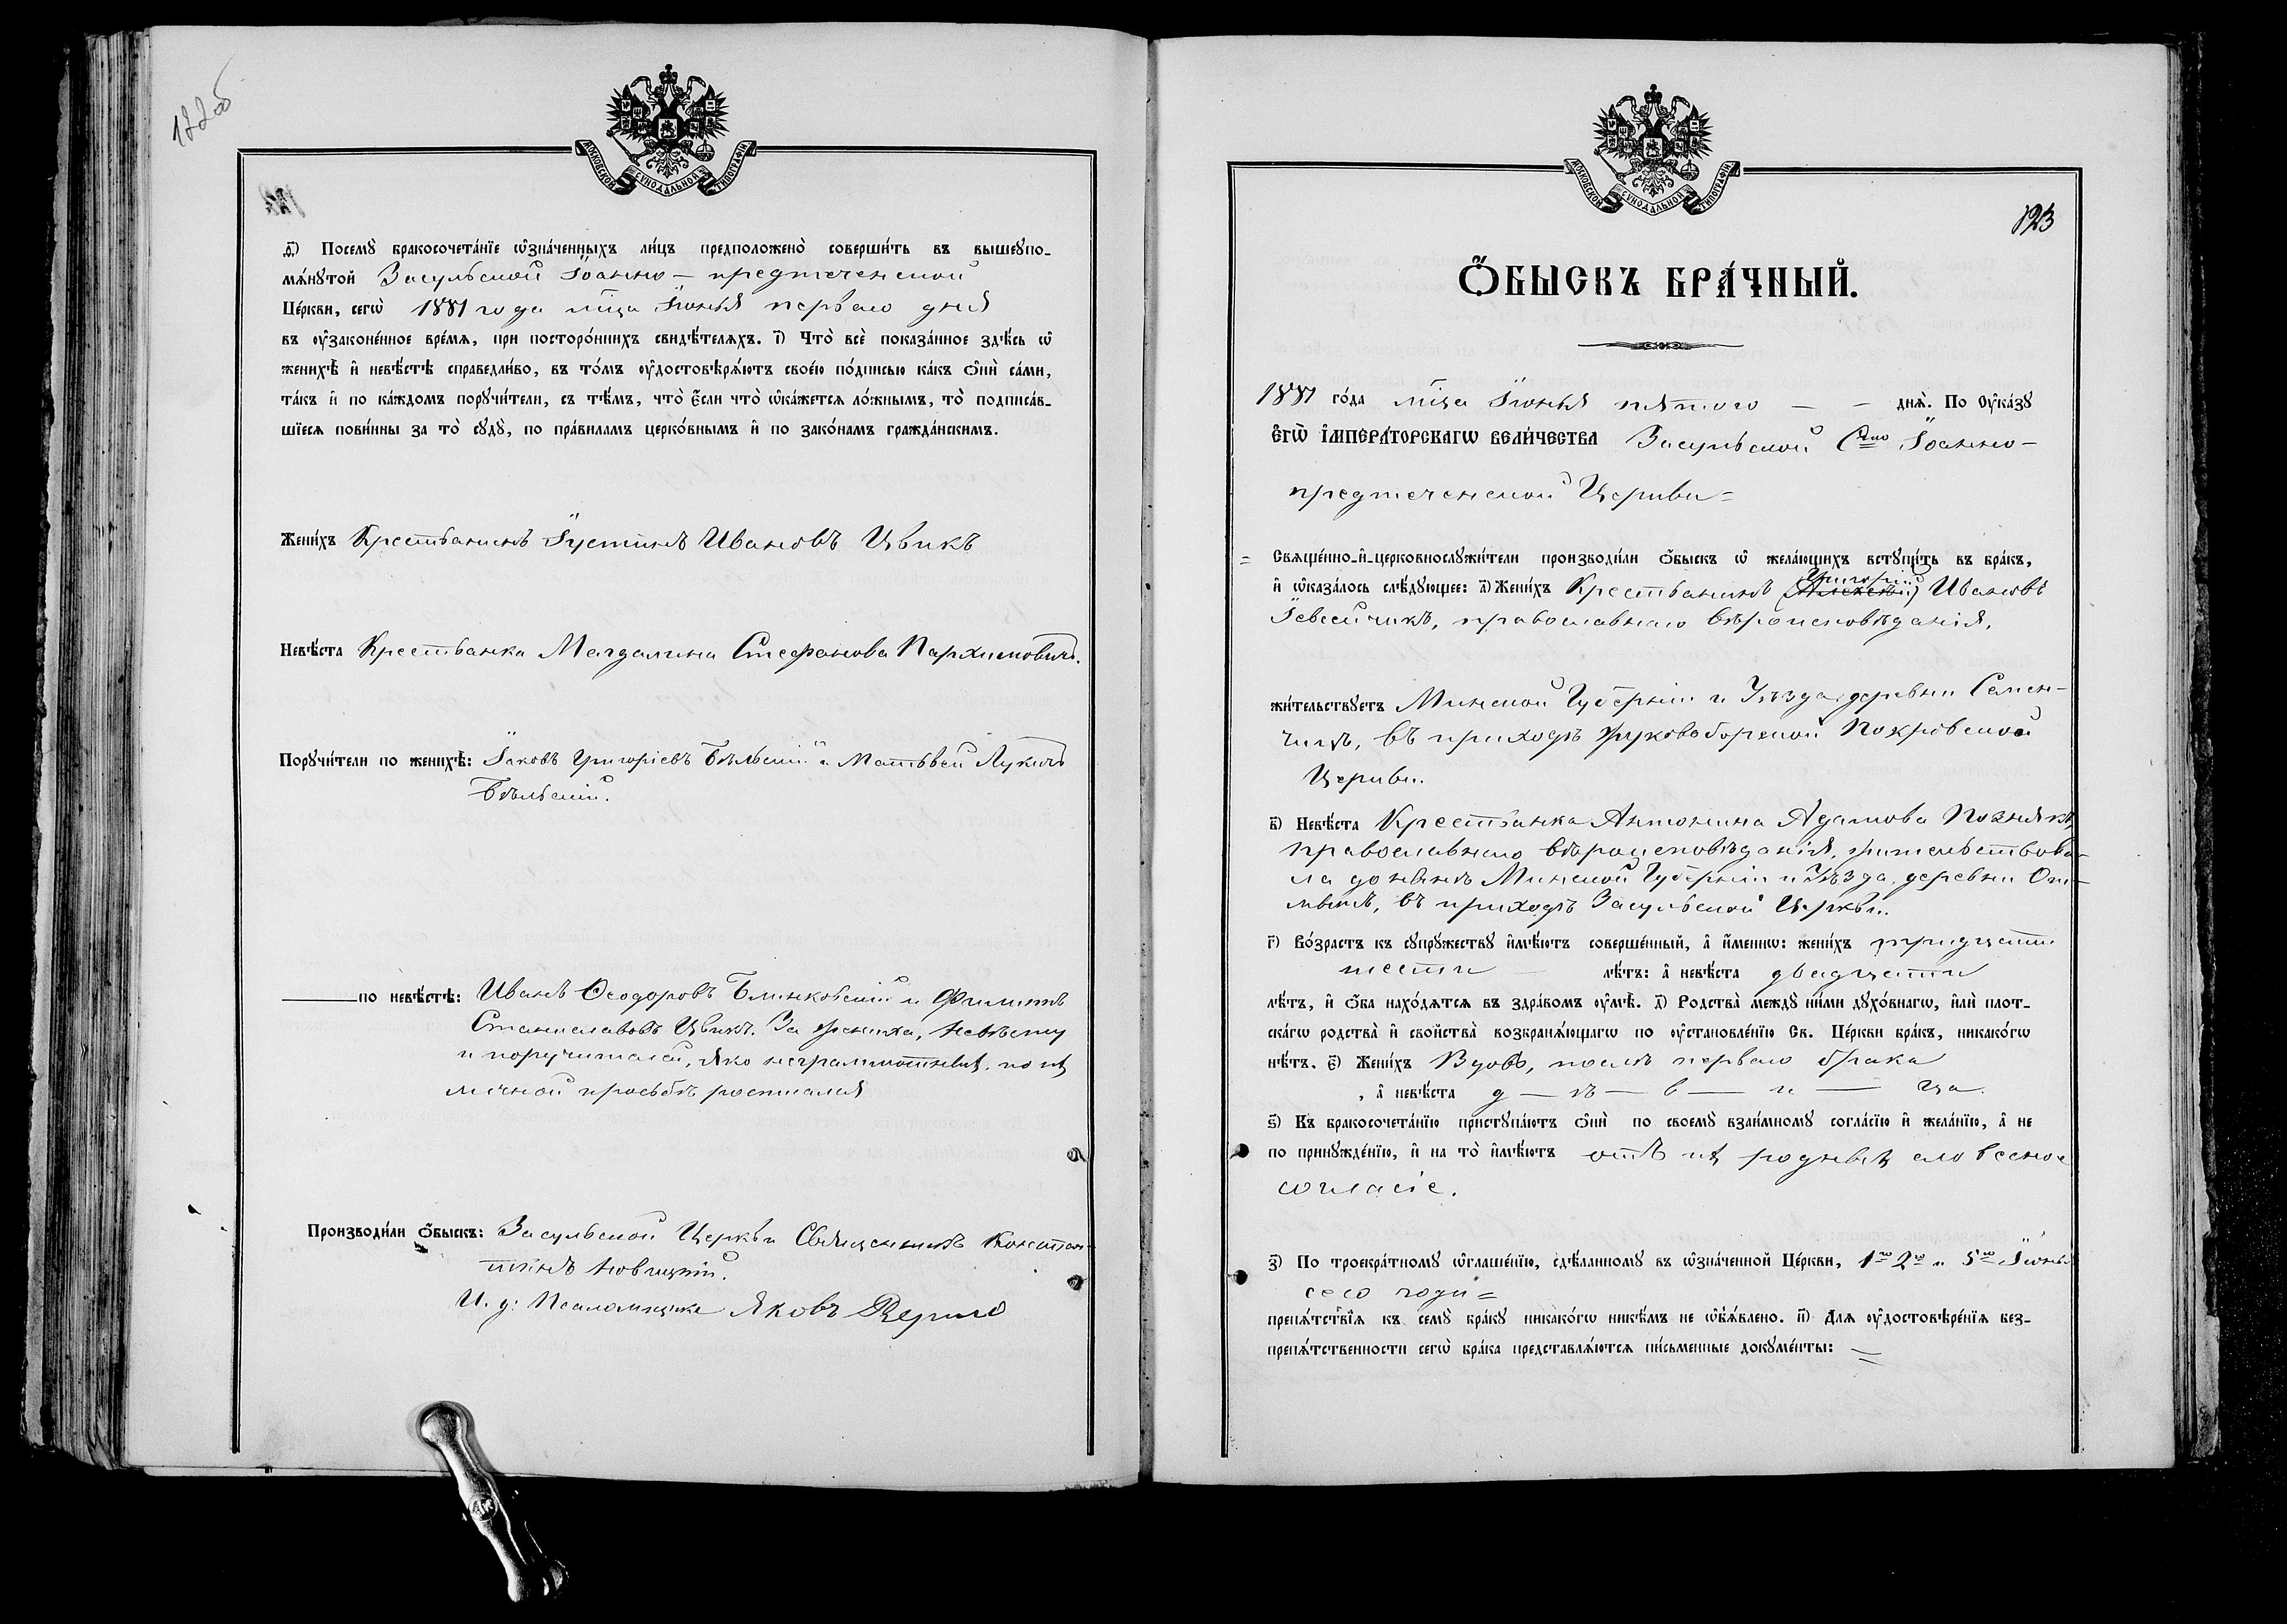 122об
МОСКОВСКОЙ СѴНОДАЛЬНОЙ ТИПОГРАФІИ
ѳ҃) Посемꙋ̀ бракосочета́нїе ѡ҆зна́ченныхъ ли́цъ предположено̀ соверши́ть въ вышеꙋпо-
мѧ́нутой Засульской Іоанно - предтеченской
Це́ркви, сегѡ̀ 1881 года мѣца Іюня перваго дня
въ ᲂу҆законе́нное вре́мѧ, при посторо́ннихъ свидѣ́телѧхъ. і҃) Что̀ всѐ показа́нное здѣ́сь ѡ҆
женихѣ̀ и҆ невѣ́стѣ справедли́во, въ то́мъ ᲂу҆достовѣрѧ́ютъ свое́ю по́дписью ка́къ ѻ҆нѝ са́ми,
та́къ и҆ по ка́ждомъ порꙋчи́тели, съ тѣ́мъ, что̀ є҆́сли что̀ ѡ҆ка́жетсѧ ло́жнымъ, то̀ подписа́в-
шїесѧ пови́нны за то̀ сꙋдꙋ̀, по пра́виламъ церко́внымъ и҆ по зако́намъ гражда́нскимъ.
Жени́хъ Крестьянинъ Іустинъ Ивановъ Цвикъ
Невѣ́ста Крестьянка Магдалина Стефанова Пархимовичъ.
Порꙋчи́тели по женихѣ̀: Іаковъ Григоріевъ Бѣльскій и Матѳѣй Лукинъ
Бѣльскій.
по невѣ́стѣ: Иванъ Ѳеодоровъ Блинковскій и Филиппъ
Станиславовъ Цвикъ. За жениха, невѣсту
и поручителей, яко неграмотныхъ, по ихъ
личной просьбѣ росписался
Производи́ли ѻ҆́быскъ: Засульской Церкви Священникъ Констан-
тинъ Новицкій.
И. д. Псаломщика Яковъ
МОСКОВСКОЙ СѴНОДАЛЬНОЙ ТИПОГРАФІИ
123
Ѻ҆́БЫСКЪ БРА́ЧНЫЙ.
1881 го́да мѣца Іюня пятаго — — днѧ̀. По Оу҆ка́зꙋ
Є҆ГѠ̀ І҆МПЕРА́ТОРСКАГѠ ВЕЛИ́ЧЕСТВА Засульской Свято Іоанно-
предтеченской Церкви =
= Свѧще́нно-и҆-церковнослꙋжи́тели производи́ли ѻ҆́быскъ ѡ҆ жела́ющихъ встꙋпи́ть въ бра́къ,
и҆ ѡ҆каза́лось слѣ́дꙋющее: а҃) Жени́хъ Крестьянинъ (Алексѣй) Григорій Ивановъ
православнаго вѣроисповѣданія,
жи́тельствꙋетъ Минской Губерніи и Уѣзда, деревни Семен-
въ приходѣ Жуковоборской Покровской
Церкви.
в҃) Невѣ́ста Крестьянка Антонина Адамова Познякъ,
православнаго вѣроисповѣданія, жительствова-
ла донынѣ Минской Губерніи и Уѣзда, деревни
въ приходѣ Засульской Церкви.
г҃) Во́зрастъ къ сꙋпрꙋжествꙋ и҆мѣ́ютъ соверше́нный, а҆ и҆́меннѡ: жени́хъ тридцати
шести — лѣ́тъ: а҆ невѣ́ста двадцати
лѣ́тъ, и҆ ѻ҆́ба нахо́дѧтсѧ въ здра́вомъ ᲂу҆мѣ̀. д҃) Родства̀ междꙋ̀ ни́ми дꙋхо́внагѡ, и҆лѝ плот-
ска́гѡ родства̀ и҆ свойства̀ возбранѧ́ющагѡ по ᲂу҆становле́нїю Св. Це́ркви бра́къ, никако́гѡ
нѣ́тъ. є҃) Жени́хъ Вдовъ, послѣ перваго брака
, а҆ невѣ́ста д — ѣ — в — и — ца.
ѕ҃) Къ бракосочета́нїю пристꙋпа́ютъ ѻ҆нѝ по своемꙋ̀ взаи́мномꙋ согла́сїю и҆ жела́нїю, а҆ не
по принꙋжде́нїю, и҆ на то̀ и҆мѣ́ютъ отъ ихъ родныхъ словесное
согласіе.
з҃) По троекра́тномꙋ ѡ҆глаше́нїю, сдѣ́ланномꙋ въ ѡ҆зна́ченной Це́ркви, 1го 2го и 5го Іюня
сего года =
препѧ́тствїѧ къ семꙋ̀ бра́кꙋ никако́гѡ никѣ́мъ не ѡ҆б̾ѧ́влено. и҃) Длѧ ᲂу҆достовѣре́нїѧ без-
препѧ́тственности сегѡ̀ бра́ка представлѧ́ютсѧ пи́сьменные докꙋме́нты: =